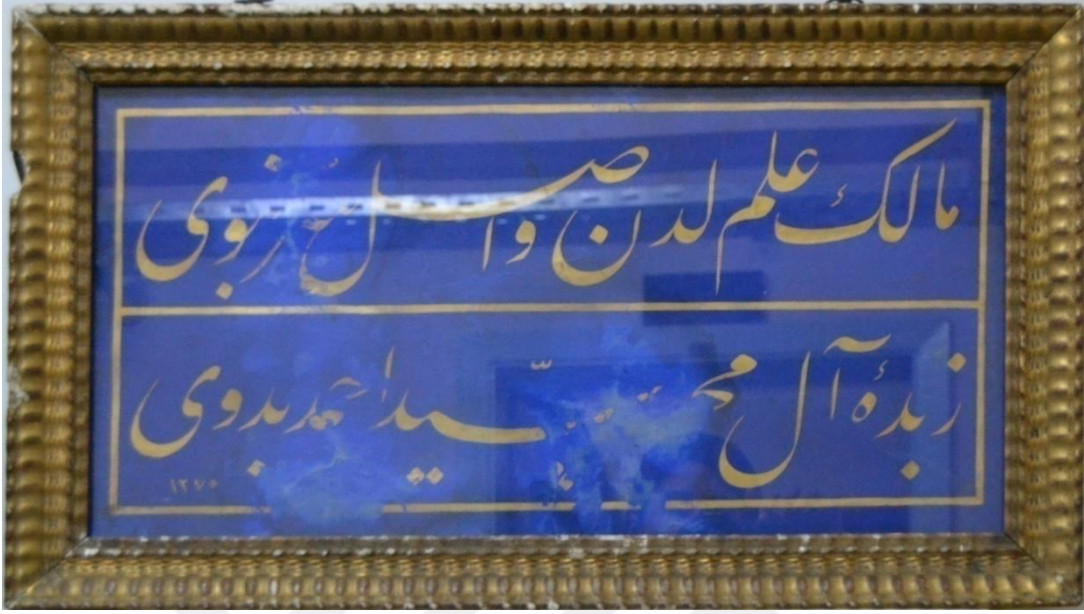 مالك علم لدن واصل نبوی
زبدهٔ آل سيّد احمد بدوی
١٢٧٥